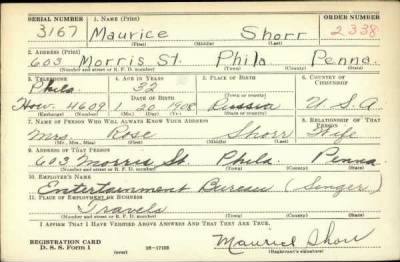 SERIAL NUMBER 1. NAME (Print) ORDER NUMBER
3167 Maurice Shorr 2338
(First) (Middle) (Last)
2. ADDRESS (Print)
603 Morris St. Phila Penna.
(Number and street or R. F. D. number) (Town) (County) (State)
3. TELEPHONE 4. AGE IN YEARS 5. PLACE OF BIRTH 6. COUNTRY OF CITIZENSHIP
Phila 32
DATE OF BIRTH
How. 4609 1 20 1908 Russia U.S.A
(Exchange) (Number) (Mo.) (Day) (Yr.) (State or country)
7. NAME OF PERSON WHO WILL ALWAYS KNOW YOUR ADDRESS 8. RELATIONSHIP OF THAT PERSON
Mrs. Rose Shorr Wife
(Mr., Mrs., Miss) (First) (Middle) (Last)
9. ADDRESS OF THAT PERSON
603 Morris St. Phila. Penna
(Number and street or R. F. D. number) (Town) (County) (State)
10. EMPLOYER'S NAME
Entertainment Bureau (Singer)
11. PLACE OF EMPLOYMENT OR BUSINESS
Travels
(Number and street or R. F. D. number) (Town) (County) (State)
I AFFIRM THAT I HAVE VERIFIED ABOVE ANSWERS AND THAT THEY ARE TRUE.
REGISTRATION CARD
D. S. S. Form 1 (over) 16-17105 Maurice Shorr
(Registrant's signature)